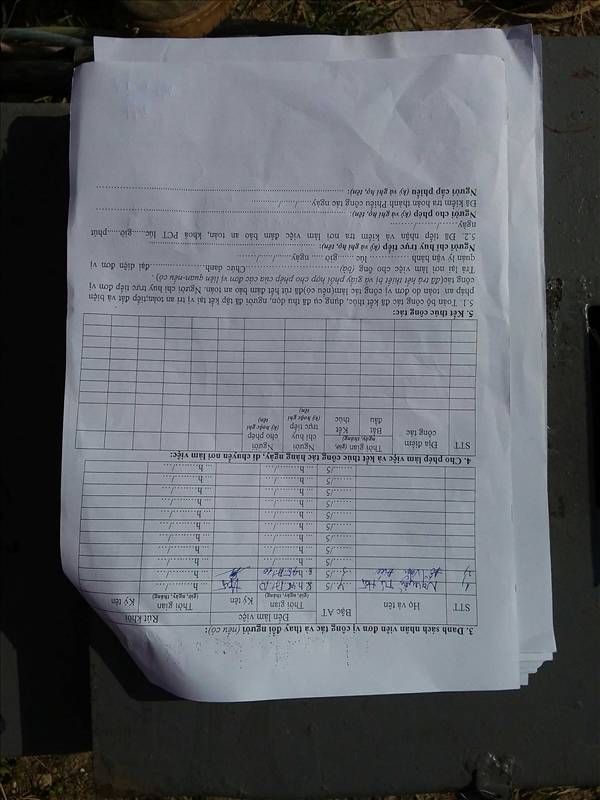 3. Danh sách nhân viên đơn vị công tác và thay đổi người (nếu có):
STT Họ và tên Bậc AT Đến làm việc Rút khỏi
Thời gian (giờ, ngày, tháng) Ký tên Thời gian (giờ, ngày, tháng) Ký tên
1/ Nguyễn /5 ...h....../...
2/ /5 ...h....../...
....../5 ... h........./... ... h........./...
....../5 ... h........./... ... h........./...
....../5 ... h........./... ... h........./...
....../5 ... h........./... ... h........./...
....../5 ... h........./... ... h........./...
....../5 ... h........./... ... h........./...
....../5 ... h........./... ... h........./...
4. Cho phép làm việc và kết thúc công tác hàng ngày, di chuyển nơi làm việc:
STT Địa điểm công tác Thời gian (giờ, ngày, tháng) Người chỉ huy trực tiếp (ký hoặc ghi tên) Người cho phép (ký hoặc ghi tên)
Bắt đầu Kết thúc
5. Kết thúc công tác:
5.1. Toàn bộ công tác đã kết thúc, dụng cụ đã thu dọn, người đã tập kết tại vị trí an toàn,tiếp đất và biện
pháp an toàn do đơn vị công tác làm(nếu có)đã rút hết đảm bảo an toàn. Người chỉ huy trực tiếp đơn vị
công tác(đã trả hết thiết bị và giấy phối hợp cho phép của các đơn vị liên quan-nếu có).
Trả lại nơi làm việc cho ông (bà)............................ Chức danh...............đại diện đơn vị
quản lý vận hành ........... lúc .......giờ ..... ngày ....../....../......
Người chỉ huy trực tiếp (ký và ghi họ, tên): ........................................
5.2. Đã tiếp nhận và kiểm tra nơi làm việc đảm bảo an toàn, khoá PCT lúc .......giờ......phút
ngày....../....../........
Người cho phép (ký và ghi họ, tên): ........................................
Đã kiểm tra hoàn thành Phiếu công tác ngày ....../....../......
Người cấp phiếu (ký và ghi họ, tên): ........................................